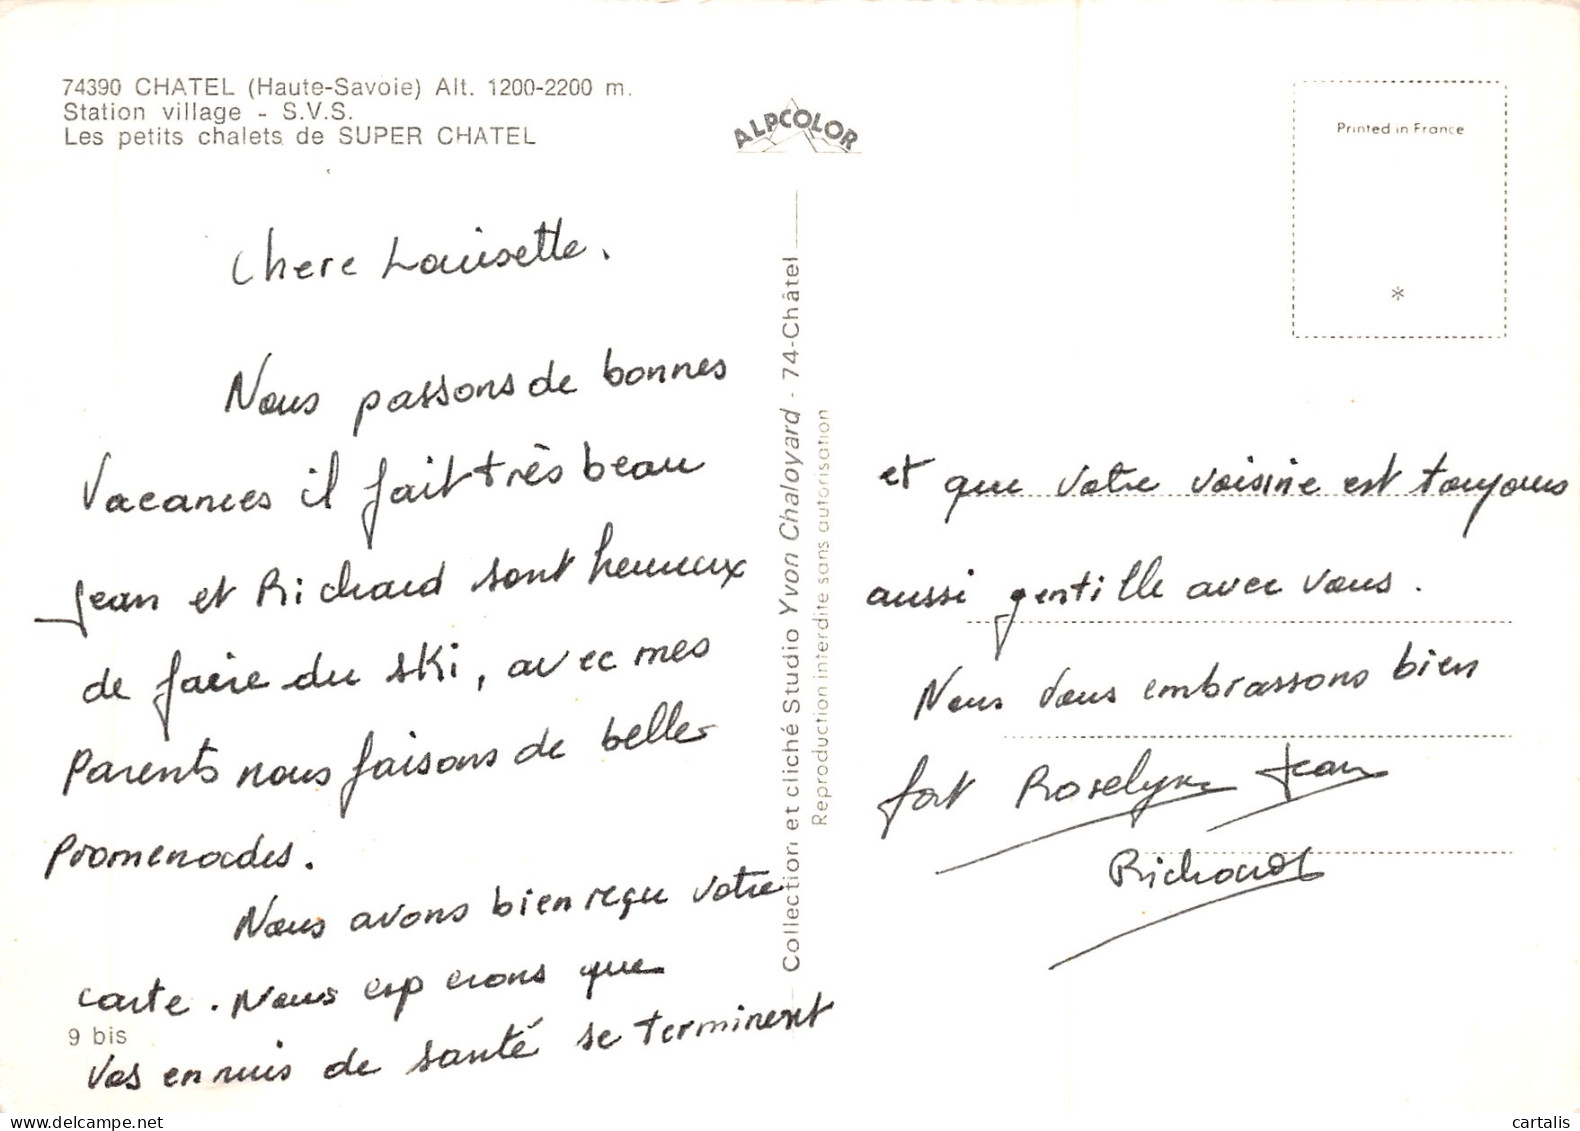 74390 CHATEL (Haute-Savoie) Alt. 1200-2200 m.
Station village - S.V.S.
Les petits chalets de SUPER CHATEL
ALPCOLOR
Printed in France
*
Chere Louisette.
Nous passons de bonnes
Vacances il fait très beau
Jean et Richard sont heureux
de faire du ski, avec mes
Parents nous faisons de belles
Promenades.
Nous avons bien reçu votre
carte. Nous esperons que
9 bis
Vos ennuis de santé se terminent
Collection et cliché Studio Yvon Chaloyard - 74-Châtel
Reproduction interdite sans autorisation
et que votre voisine est toujours
aussi gentille avec vous.
Nous Vous embrassons bien
fort Roselyne Jean
Richard
cartalis